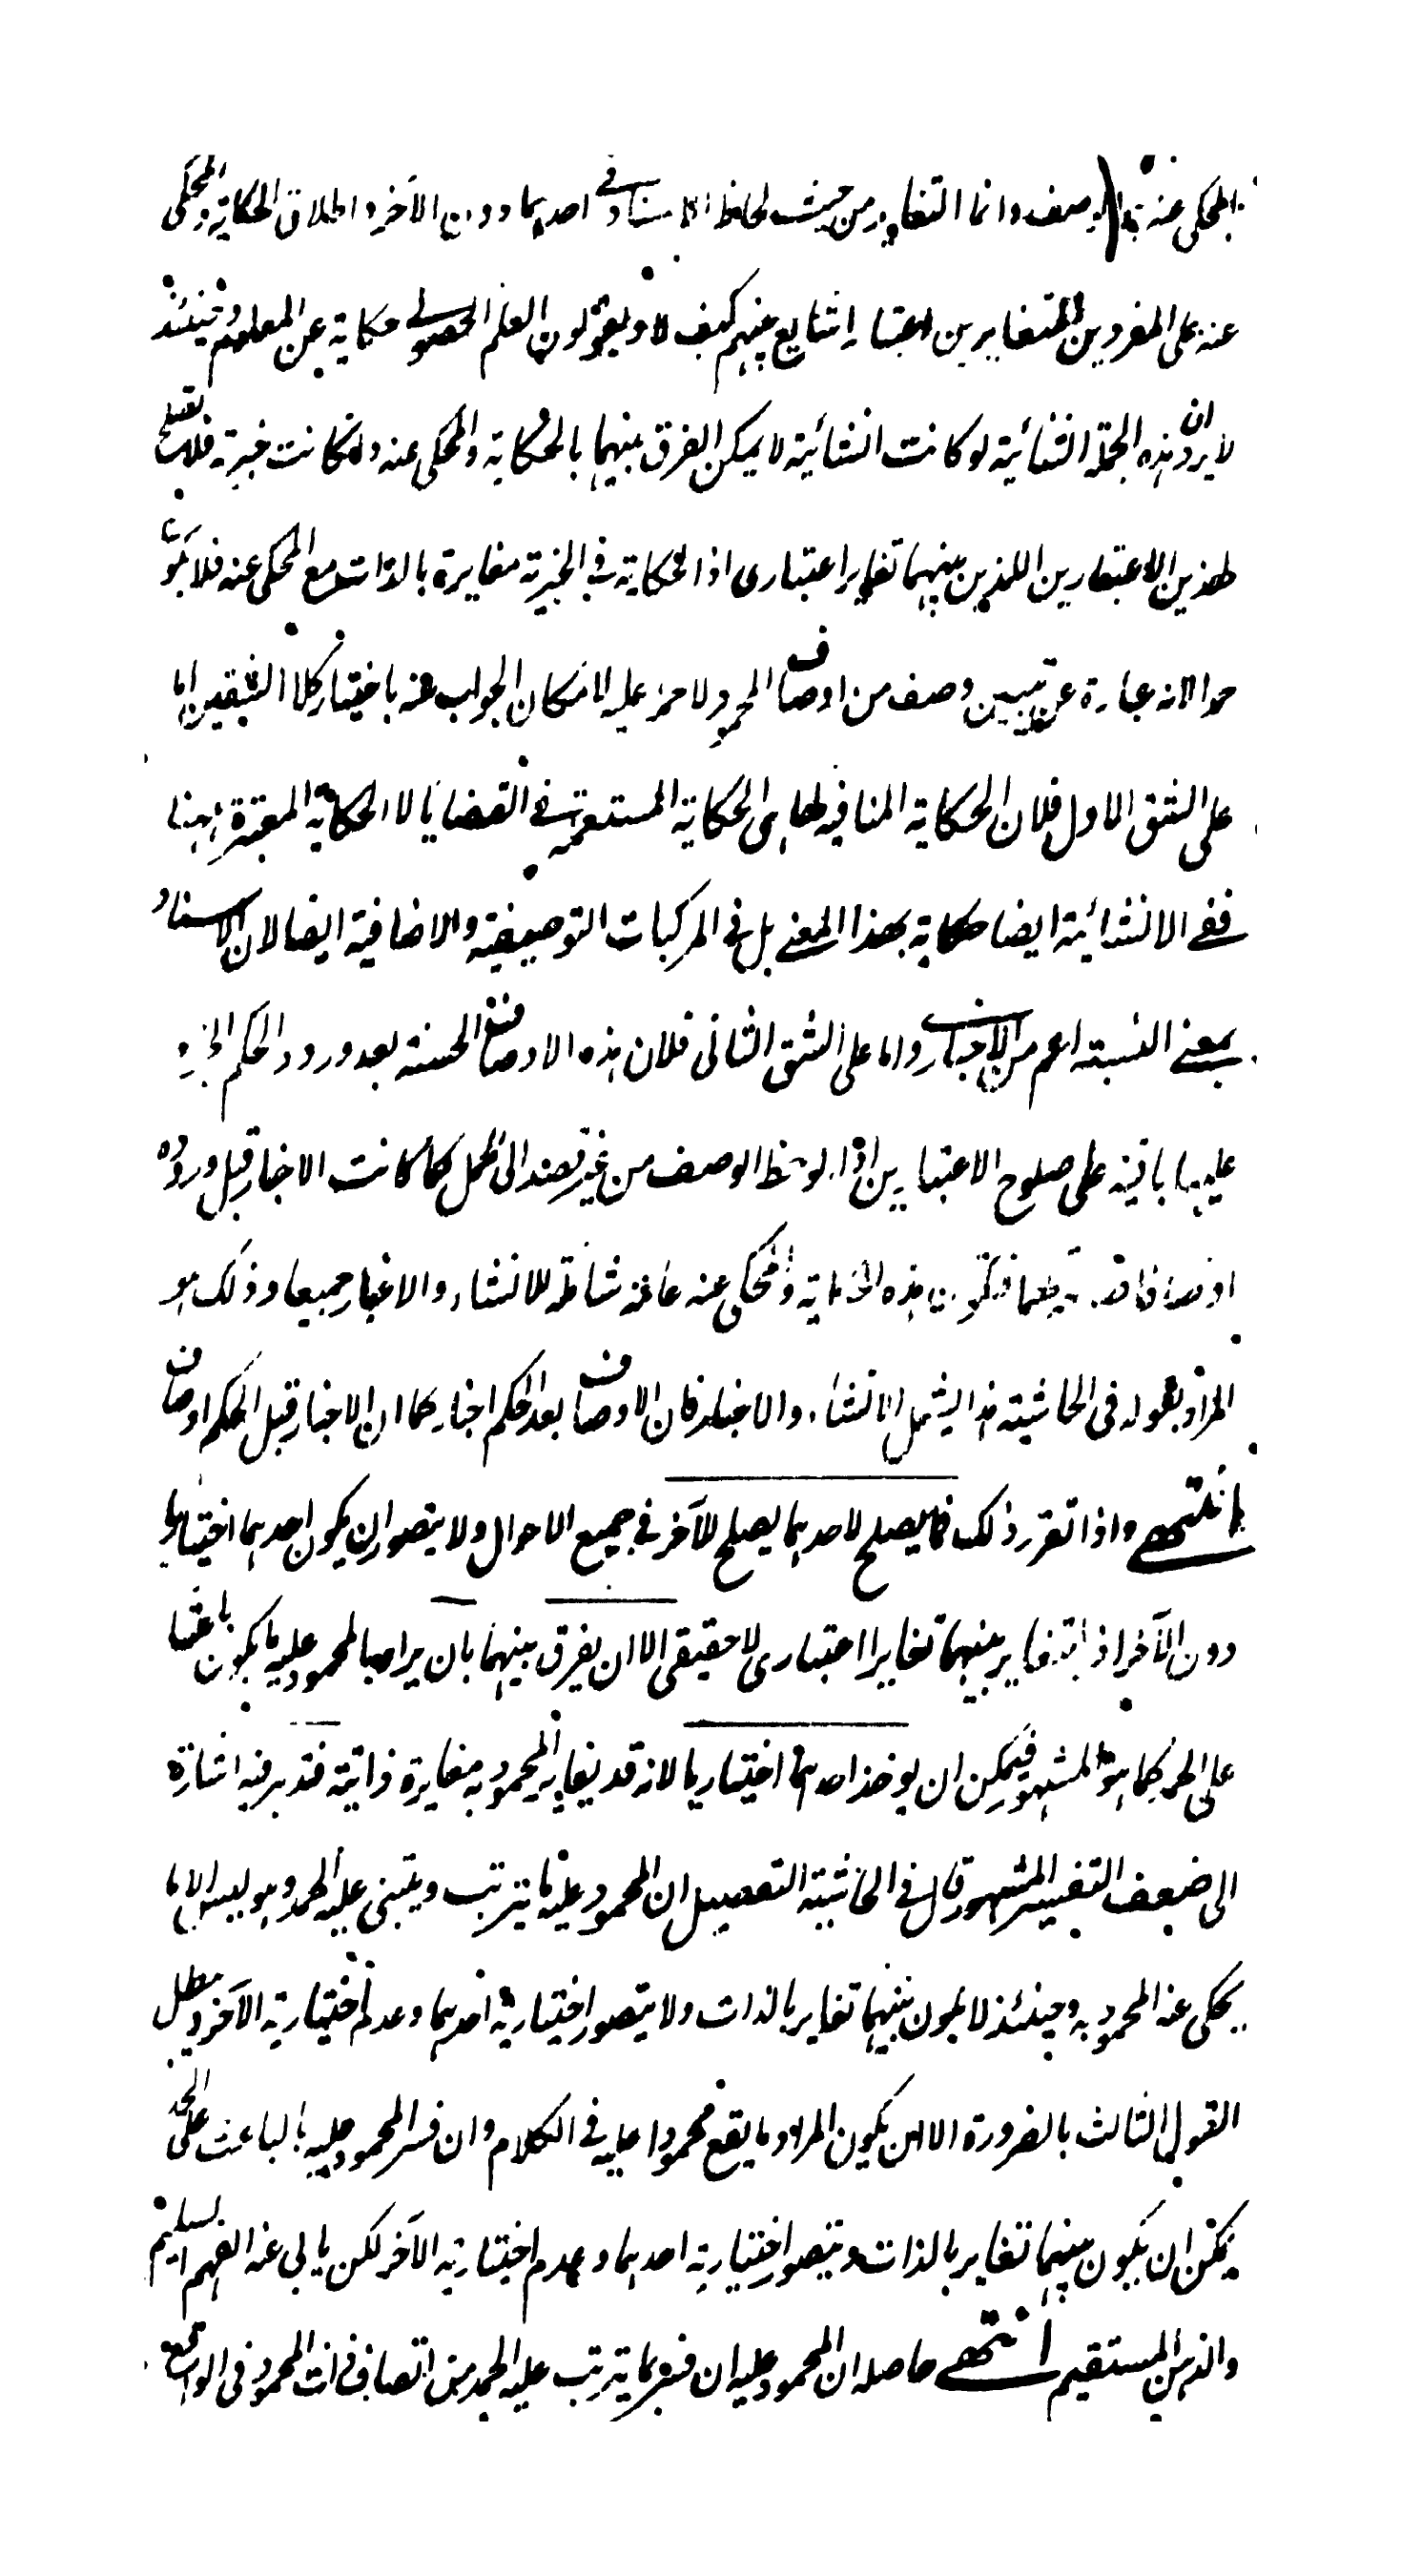 المحكى عنه هذا الوصف وانما التغاير من حيث لحاظ الاسناد فى احدهما دون الآخر واطلاق الحكاية والمحكى
عنه على المفردين المتغايرين اعتبارا شايع بينهم كيف لا ويقولون العلم الحصولى حكاية عن المعلوم وحينئذ
لا يرد ان هذه الجملة الثنائية لو كانت انشائية لا يمكن الفرق بينهما بالحكاية والمحكى عنه وان كانت خبرية فلا تصلح
لهذين الاعتبارين اللذين بينهما تغاير اعتبارى اذ الحكاية فى الخبرية مغايرة بالذات مع المحكى عنه فلا يكون
حمدا لانه عبارة عن تبيين وصف من اوصاف المحمود لا حمز عليه لامكان الجواب عنه باختيار كلا الشقين اما
على الشق الاول فلان الحكاية المنافية لها هى الحكاية المستعملة فى القضايا لا الحكاية المعتبرة ههنا
ففى الانشائية ايضا حكاية بهذا المعنى بل فى المركبات التوصيفية والاضافية ايضا لان الاسناد
بمعنى النسبة اعم من الاخبار واما على الشق الثانى فلان هذه الاوصاف الحسنة بعد ورود الحكم الخبرى
عليها باقية على صلوح الاعتبارين اذا لوحظ الوصف من غير قصد الى الحمل كما كانت الاخبار قبل وروده
اوصافا فتكون هذه الحكاية والمحكى عنه عامة شاملة للانشاء والاخبار جميعا وذلك هو
المراد بقوله فى الحاشية هذا يشمل الانشاء والاخبار فان الاوصاف بعد الحكم اخبار كما ان الاخبار قبل الحكم اوصاف
انتهى واذا تقرر ذلك فما يصلح لاحدهما يصلح للآخر فى جميع الاحوال ولا يتصور ان يكون احدهما اختياريا
دون الآخر اذ التغاير بينهما تغايرا اعتبارى لا حقيقى الا ان يفرق بينهما بان يراد بالمحمود عليه ما يكون باعثا
على الحمد كما هو المشهور فيمكن ان يوخذ احدهما اختياريا لانه قد يغاير المحمود به مغايرة ذاتية فتدبر فيه اشارة
الى ضعف التفسير المشهور قال فى الحاشية التفصيل ان المحمود عليه ما يترتب ويبتنى عليه الحمد وهو ليس الا ما
يحكى عنه المحمود به وحينئذ لا يكون بينهما تغاير بالذات ولا يتصور اختيارية احدهما وعدم اختيارية الآخر ويبطل
القول الثالث بالضرورة الا ان يكون المراد ما يقع محمودا عليه فى الكلام وان فسر المحمود عليه بالباعث على الحمد
يمكن ان يكون بينهما تغاير بالذات ويتصور اختيارية احدهما وعدم اختيارية الآخر لكن يابى عنه الفهم السليم
والذهن المستقيم انتهى حاصله ان المحمود عليه ان فسر بما يترتب عليه الحمد من اتصاف ذات المحمود فى الواقع